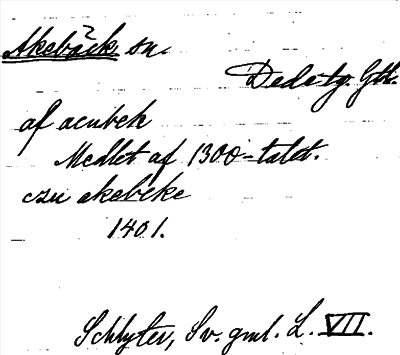 Åkebäck sn.
Dede tg. Gtl.
af acubek
Medlet af 1300-talet.
czu akebeke
1401.
Schlyter, Sv. gml. L. VII.